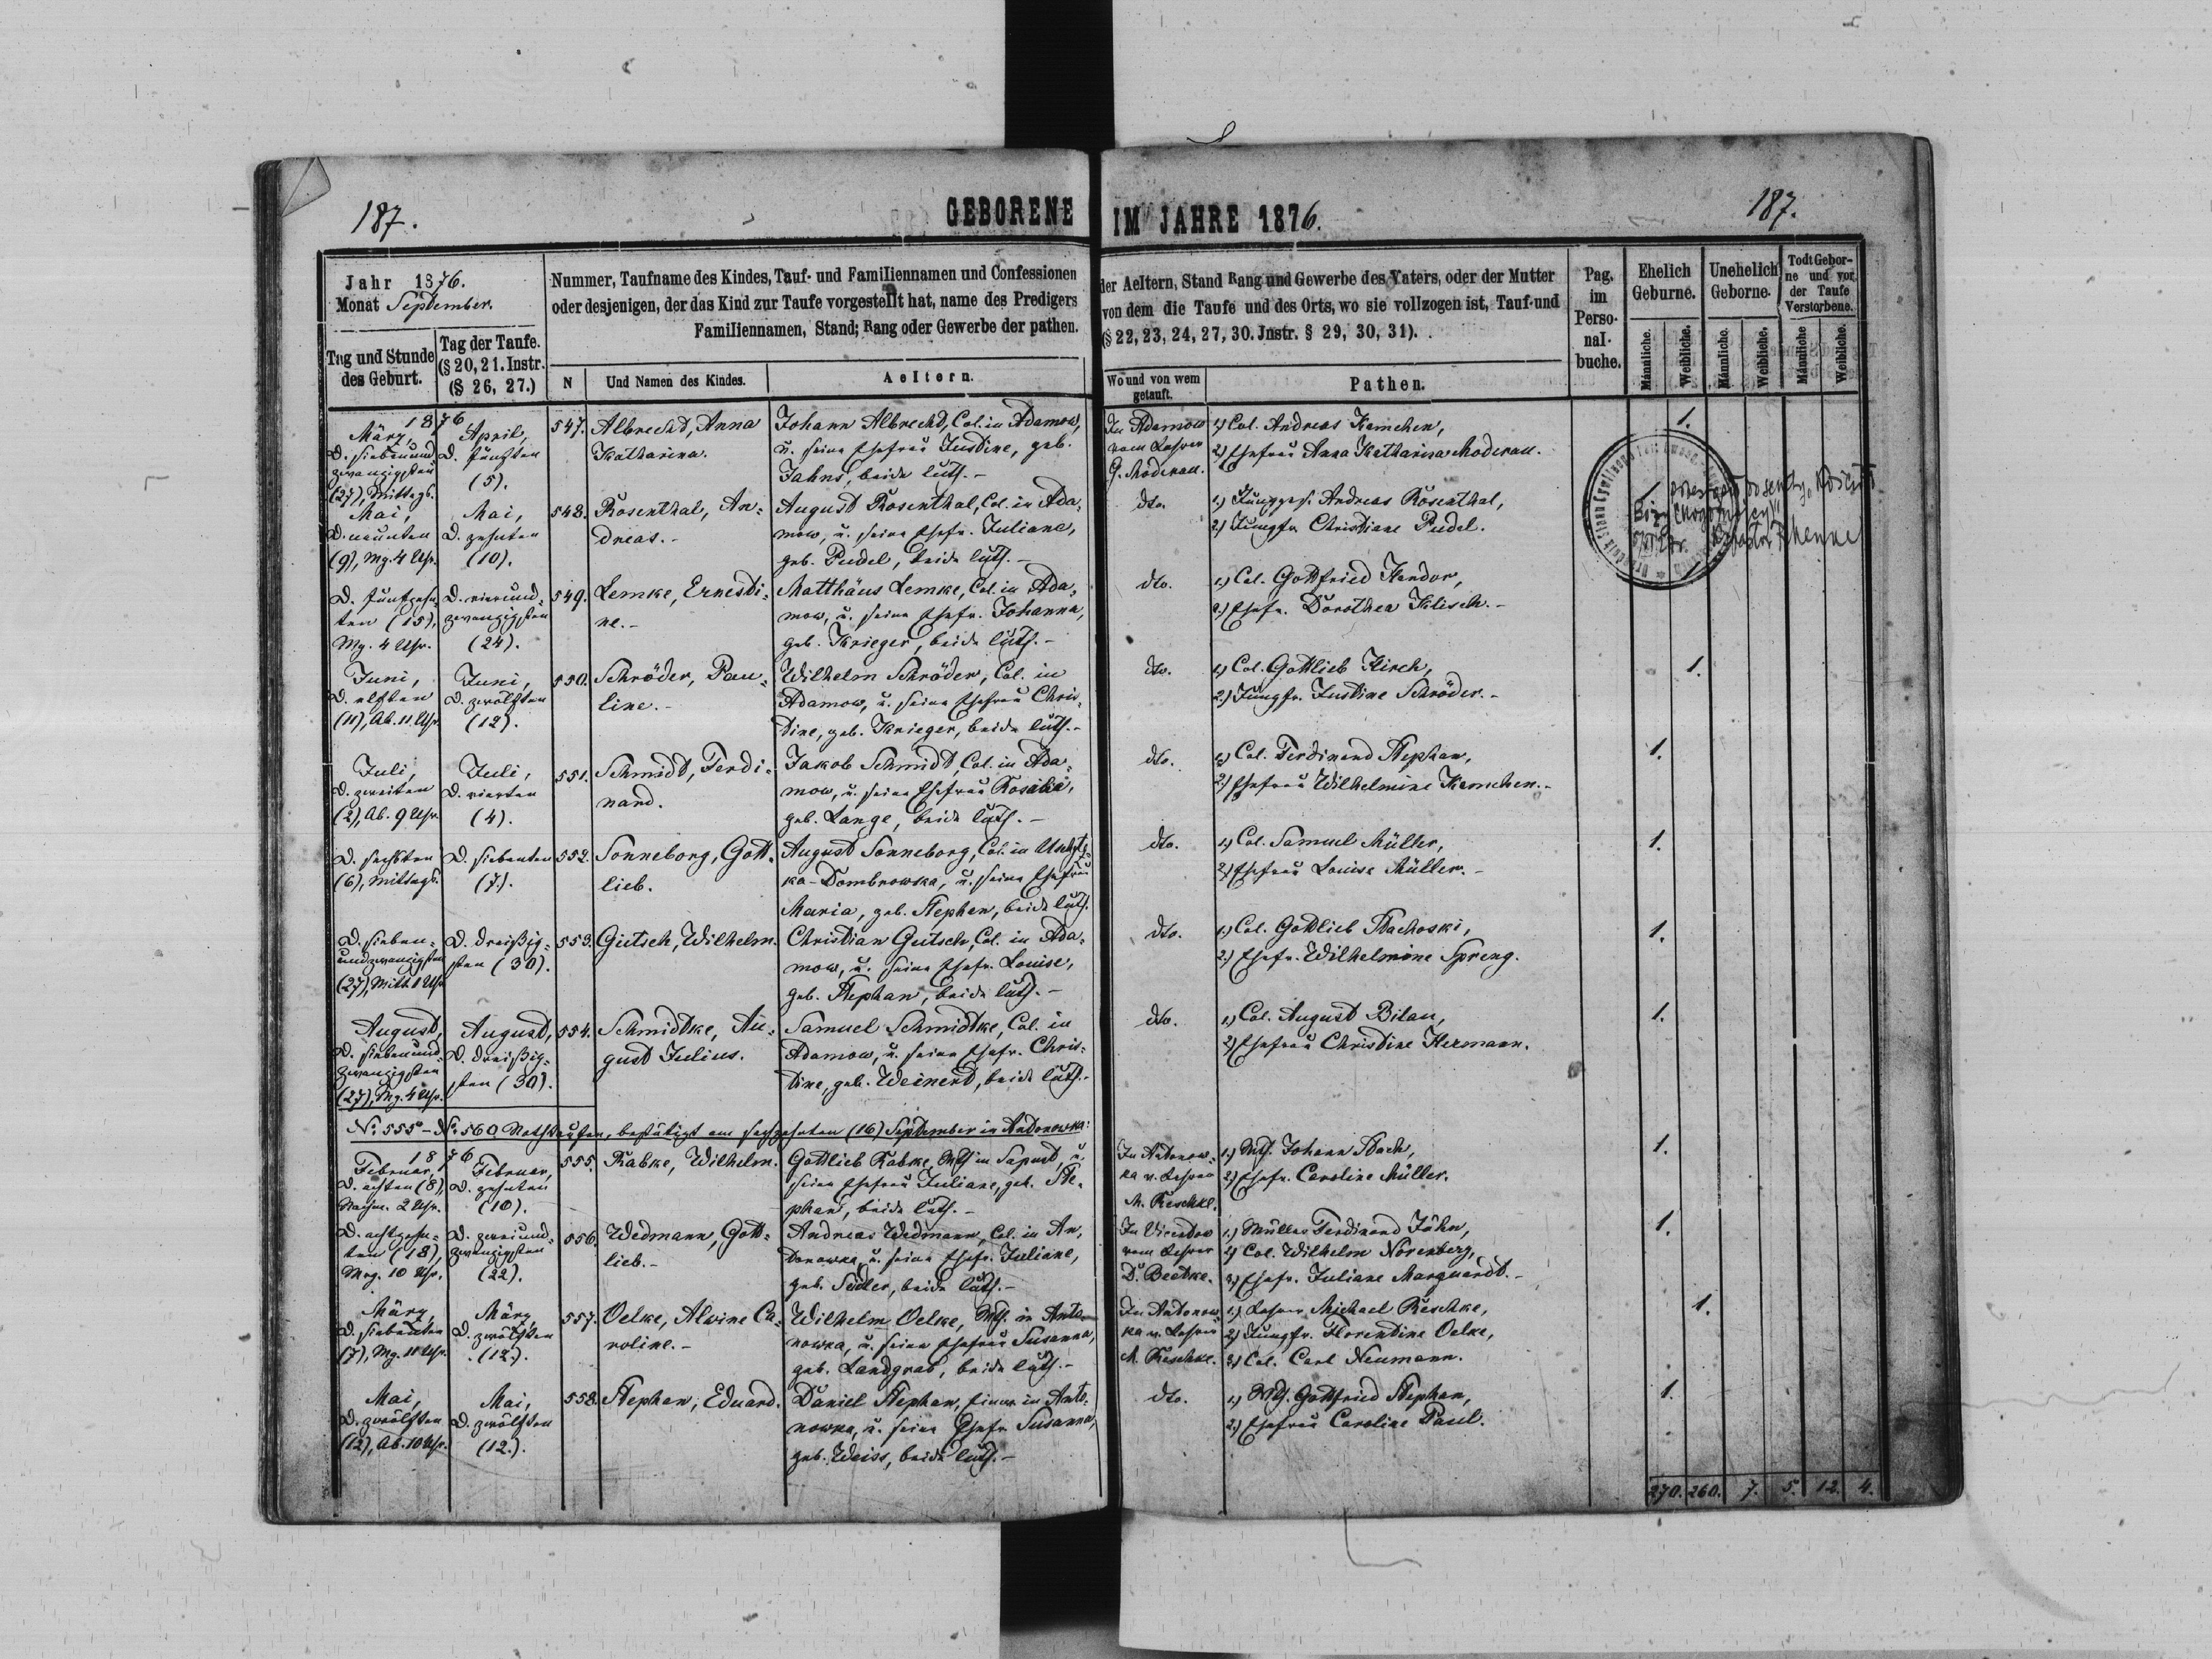 187.
GEBORENE IM JAHRE 1876.
187.
Jahr 1876.
Monat September.
Tag und Stunde des Geburt.
Tag der Taufe. (§ 20, 21. Instr. (§ 26, 27.)
Nummer, Taufname des Kindes, Tauf- und Familiennamen und Confessionen
oder desjenigen, der das Kind zur Taufe vorgestellt hat, name des Predigers
Familiennamen, Stand; Rang oder Gewerbe der pathen.
N
Und Namen des Kindes.
Aeltern.
der Aeltern, Stand Rang und Gewerbe des Vaters, oder der Mutter
von dem die Taufe und des Orts, wo sie vollzogen ist, Tauf-und
(§ 22, 23, 24, 27, 30. Jnstr. § 29, 30, 31).
Wo und von wem getauft.
Pathen.
Pag. im Perso- nal- buche.
Ehelich Geburne.
Unehelich Geborne.
Todt Gebor- ne und vor der Taufe Verstorbene.
Männliche.
Weibliche.
Männliche.
Weibliche.
Männliche
Weibliche.
1876
März,
D. siebenund
zwanzigsten
(27), Mittags.
April,
D. fünften
(5).
547.
Albrecht, Anna
Katharina.
Johann Albrecht, Col. in Adamow,
u. seine Ehefrau Justine, geb.
Jahns, beide luth. -
In Adamow
vom Lehrer
G. Moderau.
1) Col. Andreas Kemchen,
2) Ehefrau Anna Katharina Moderau.
1.
Mai,
D. neunten
(9), Mg. 4 Uhr.
Mai,
D. zehnten
(10).
548.
Rosenthal, An-
dreas. -
August Rosenthal, Col. in Ada-
mow, u. seine Ehefr. Juliane,
geb. Pudel, beide luth. -
dto.
1) Junggs. Andreas Rosenthal,
2) Jungfr. Christiane Pudel.
D. fünfzehn-
ten (15),
Mg. 4 Uhr.
D. vierund-
zwanzigsten
(24).
549.
Lemke, Ernesti-
ne. -
Matthäus Lemke, Col. in Ada-
mow, u. seine Ehefr. Johanna,
geb. Krieger, beide luth. -
dto.
1) Col. Gottfried Kendor,
2) Ehefr. Dorothea Klisch. -
Juni,
D. elften
(11), Ab. 11 Uhr.
Juni,
D. zwölften
(12).
550.
Schröder, Pau-
line. -
Wilhelm Schröder, Col. in
Adamow, u. seine Ehefrau Chris-
tine, geb. Krieger, beide luth. -
dto.
1) Col. Gottlieb Kirch,
2) Jungfr. Justine Schröder. -
1.
Juli,
D. zweiten
(2), Ab. 9 Uhr.
Juli,
D. vierten
(4).
551.
Schmidt, Ferdi-
nand.
Jakob Schmidt, Col. in Ada-
mow, u. seine Ehefrau Rosalia,
geb. Lange, beide luth. -
dto.
1) Col. Ferdinand Stephan,
2) Ehefrau Wilhelmine Kemchen. -
1.
D. sechsten
(6), Mittags.
D. siebenten
(7).
552.
Sonneborg, Gott-
lieb.
August Sonneborg, Col. in
ka-Dombrowka, u. seine Ehefrau
Maria, geb. Stephan, beide luth.
dto.
1) Col. Samuel Müller,
2) Ehefrau Louise Müller. -
1.
D. sieben-
undzwanzigsten
(27), Mitt. 1 Uhr
D. dreißig-
sten (30).
553.
Gutsch, Wilhelm.
Christian Gutsch, Col. in Ada-
mow, u. seine Ehefr. Louise,
geb. Stephan, beide luth. -
dto.
1) Col. Gottlieb Stachoski,
2) Ehefr. Wilhelmine Spreng.
1.
August,
D. siebenund-
zwanzigsten
(27), Mg. 4 Uhr.
August,
D. dreißig-
sten (30).
554.
Schmidtke, Au-
gust Julius.
Samuel Schmidtke, Col. in
Adamow, u. seine Ehefr. Chris-
tine, geb. Weinert, beide luth. -
dto.
1) Col. August Bilau,
2) Ehefrau Christine Hermann.
1.
No. 555 - No. 560 Nothtaufen, bestätigt am sechzehnten (16) September in Antonowka:
1876
Februar,
D. achten (8),
Nachm. 2 Uhr.
Februar,
D. zehnten
(10).
555.
Rabke, Wilhelm.
Gottlieb Rabke, Mth. in Sapust, u.
seine Ehefrau Juliane, geb. Ste-
phan, beide luth. -
In Antonow-
ka v. Lehrer
M. Reschke.
1.) Mth. Johann Stach,
2) Ehefr. Caroline Müller.
1.
D. achtzehn-
ten (18),
Mrg. 10 Uhr.
D. zweiund-
zwanzigsten
(22).
556.
Wedmann, Gott-
lieb. -
Andreas Wedmann, Col. in An-
tonowka, u. seine Ehefr. Juliane,
geb. Seidler, beide luth. -
vom Lehrer
D. Beatke.
1.) Müller Ferdinand Jähn,
2) Col. Wilhelm Norenberg,
3) Ehefr. Juliane Marquardt. -
1.
März,
D. siebenten
(7), Mg. 11 Uhr.
März,
D. zwölften
(12).
557.
Oelke, Alwine Ca-
roline. -
Wilhelm Oelke, Mth. in Anto-
nowka, u. seine Ehefrau Susanna,
geb. Landgraf, beide luth. -
In Antonow-
ka v. Lehrer
M. Reschke.
1.) Lehrer Michael Reschke,
2) Jungfr. Florentine Oelke,
3) Col. Carl Neumann.
1.
Mai,
D. zwölften
(12), Ab. 10 Uhr.
Mai,
D. zwölften
(12.).
558.
Stephan, Eduard.
Daniel Stephan, Einw. in Anto-
nowka, u. seine Ehefr. Susanna,
geb. Weiss, beide luth. -
dto.
1.) Mth. Gottfried Stephan,
2) Ehefrau Caroline Paul.
1.
270. 260. 7. 5. 12. 4.